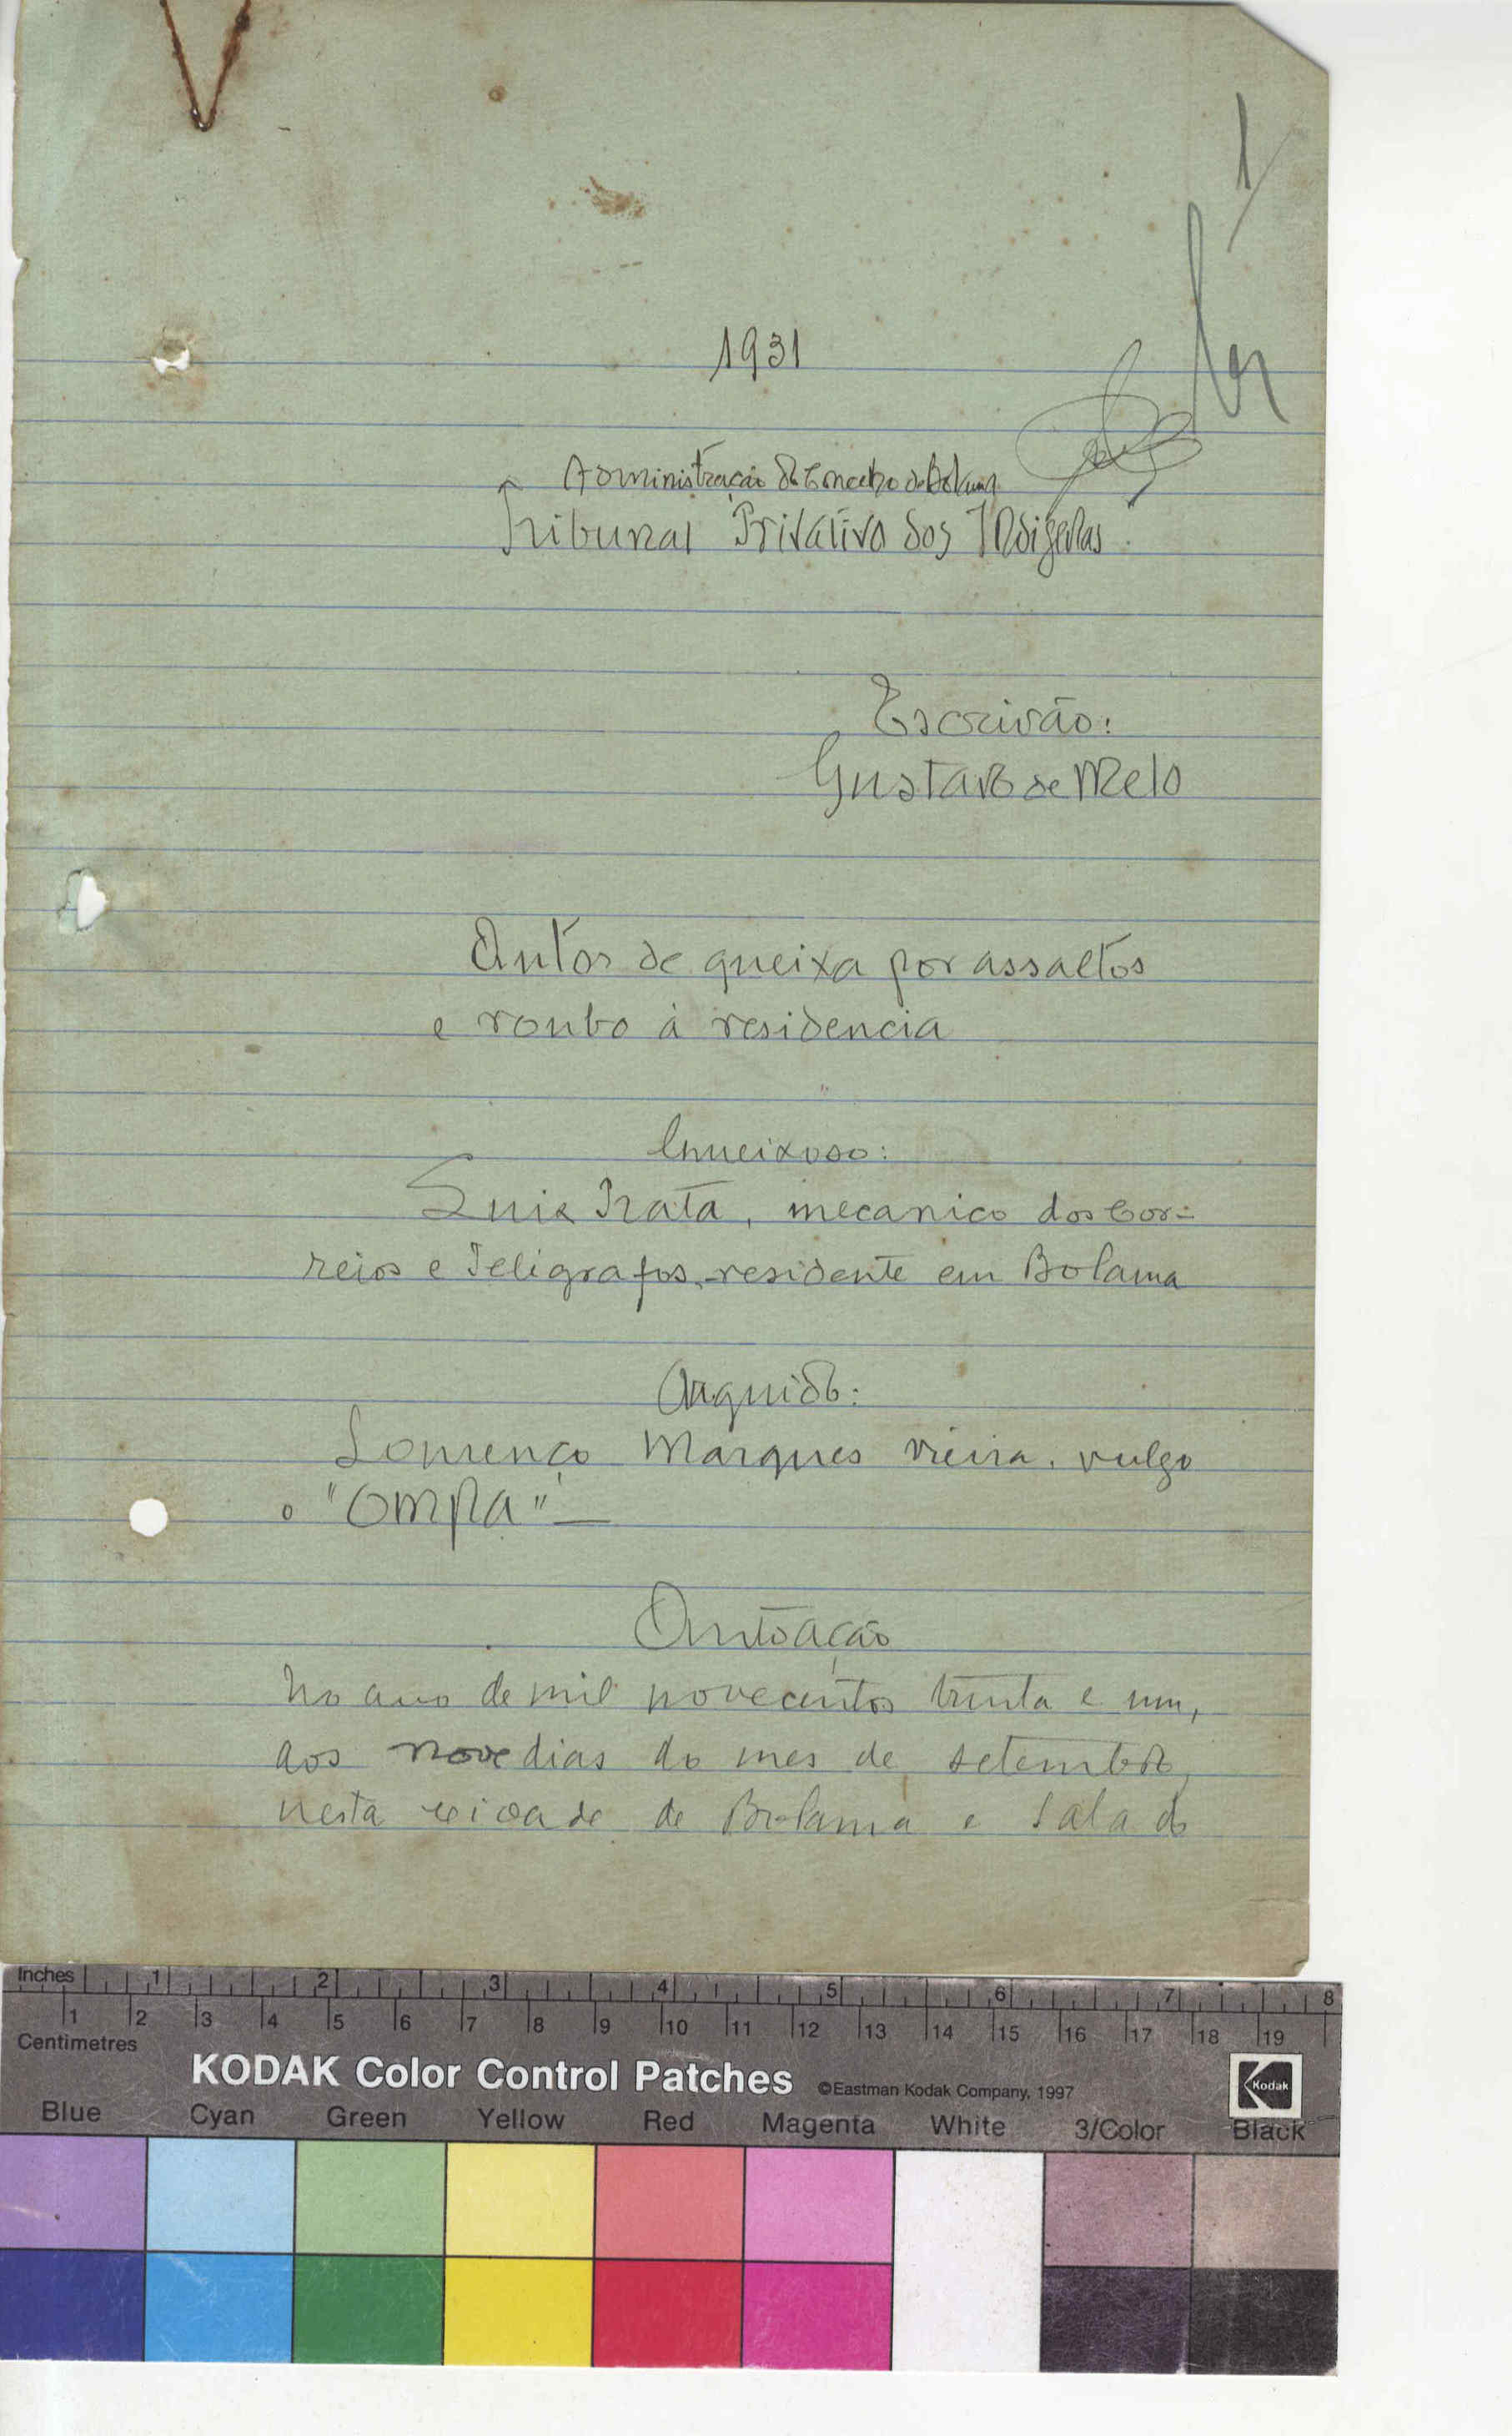 1
1931
Administração do Concelho de Bolama
Tribunal Privativo dos Indigenas.
Escrivão:
Gustavo de Melo
Autos de queixa por assaltos
e roubo à residencia
Queixoso:
Luis Trata, mecanico dos Cor-
reios e Telegrafos, residente em Bolama
Arguido:
Lourenço Marques Vieira, vulgo
o "Ompa"
Autoação
No ano de mil novecentos trinta e um,
aos nove dias do mes de setembro,
nesta cidade de Bolama e sala do
Inches 1 2 3 4 5 6 7 8
1 2 3 4 5 6 7 8 9 10 11 12 13 14 15 16 17 18 19
Centimetres
KODAK Color Control Patches ©Eastman Kodak Company, 1997 Kodak
Blue Cyan Green Yellow Red Magenta White 3/Color Black